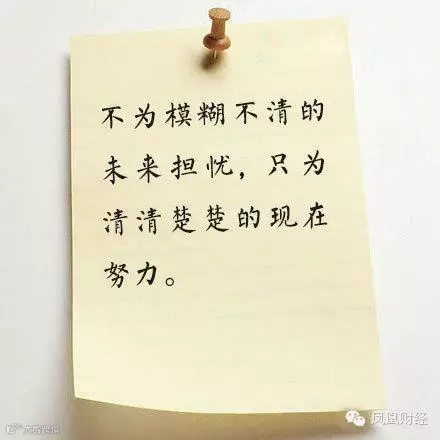 不为模糊不清的
未来担忧，只为
清清楚楚的现在
努力。
凤凰财经